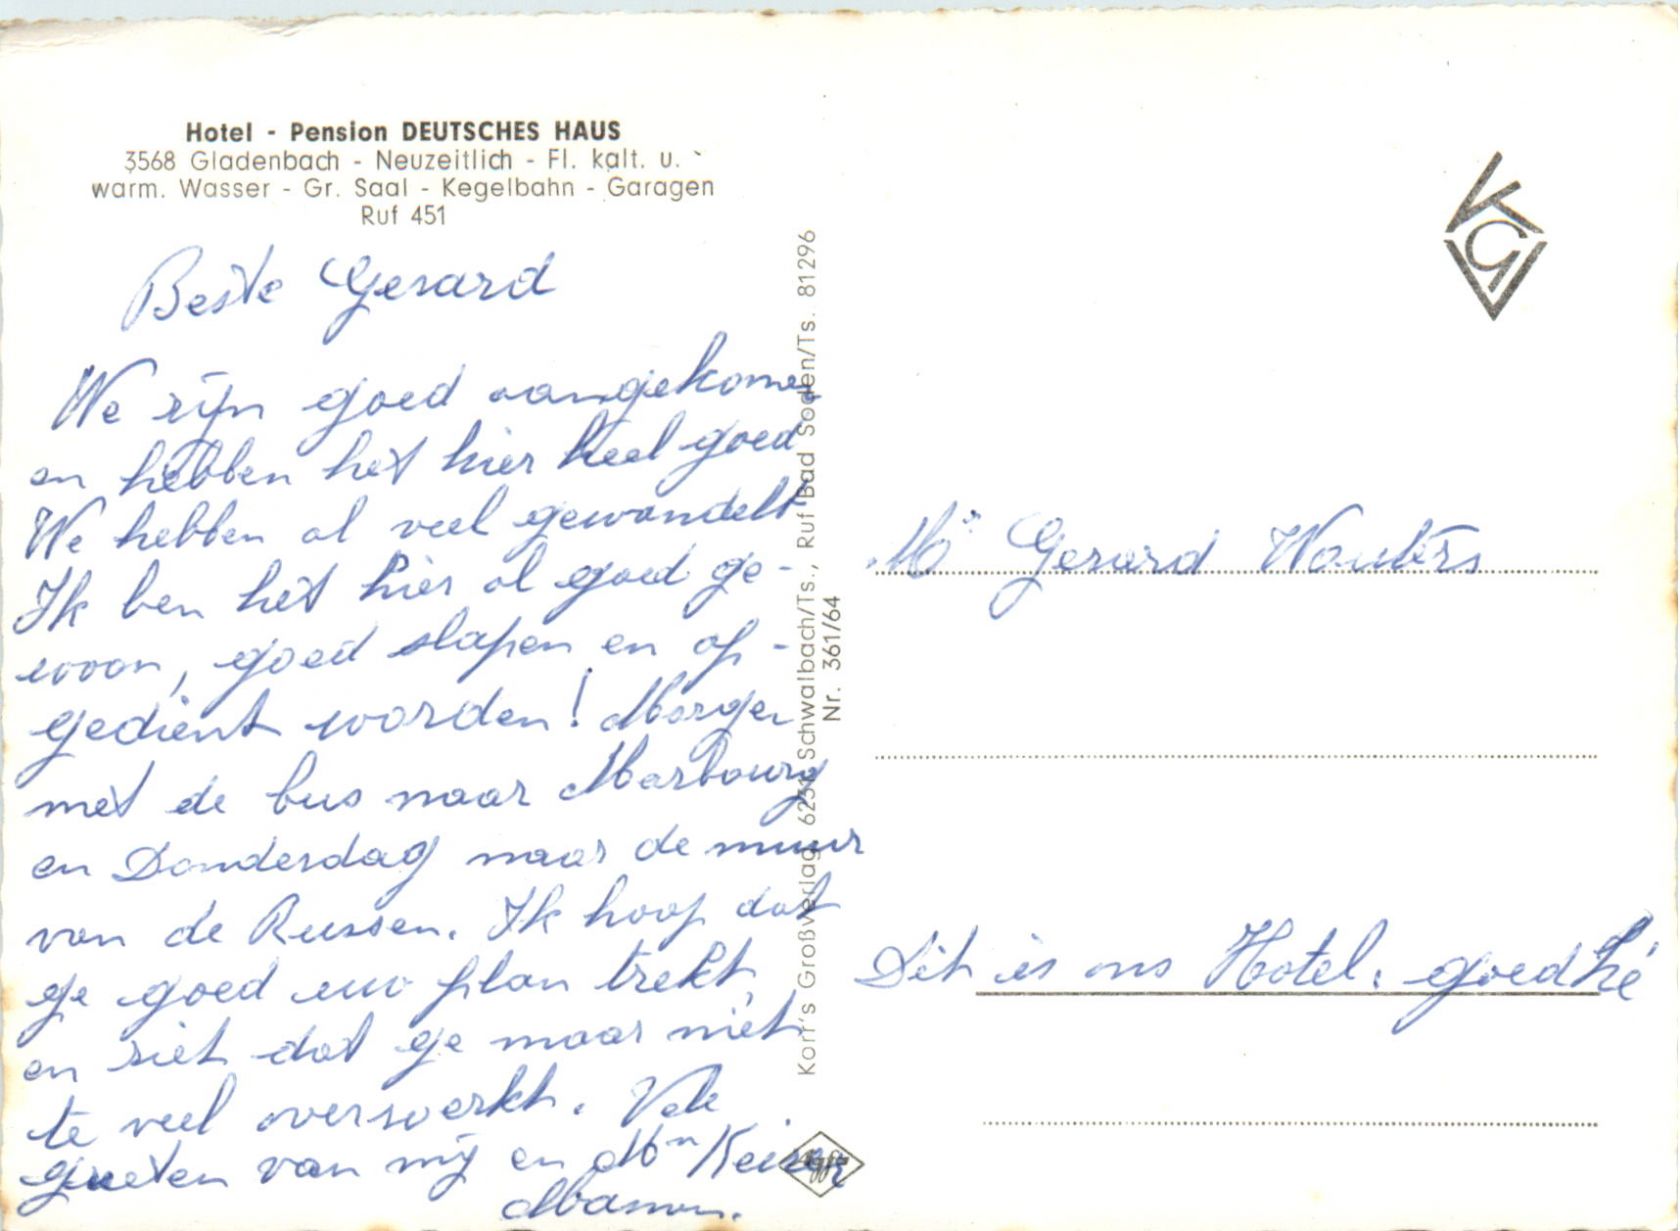 Hotel - Pension DEUTSCHES HAUS
3568 Gladenbach - Neuzeitlich - Fl. kalt. u.
warm. Wasser - Gr. Saal - Kegelbahn - Garagen
Ruf 451
Beste Gerard
We zijn goed aangekomen
en hebben het hier heel goed
We hebben al veel gewandelt
Ik ben het hier al goed ge-
woon, goed slapen en op-
gedient worden! Morgen
met de bus naar Marbourg
en Donderdag naar de muur
van de Russen. Ik hoop dat
ge goed uw plan trekt
en ziet dat ge maar niet
te veel overwerkt. Vele
groeten van mij en Mn Keizer
Maman.
Korf's Großverlag, 6231 Schwalbach/Ts., Ruf Bad Soden/Ts. 81296
Nr. 361/64
KGV
Mr Gerard Wouters
Dit is ons Hotel. goed hé